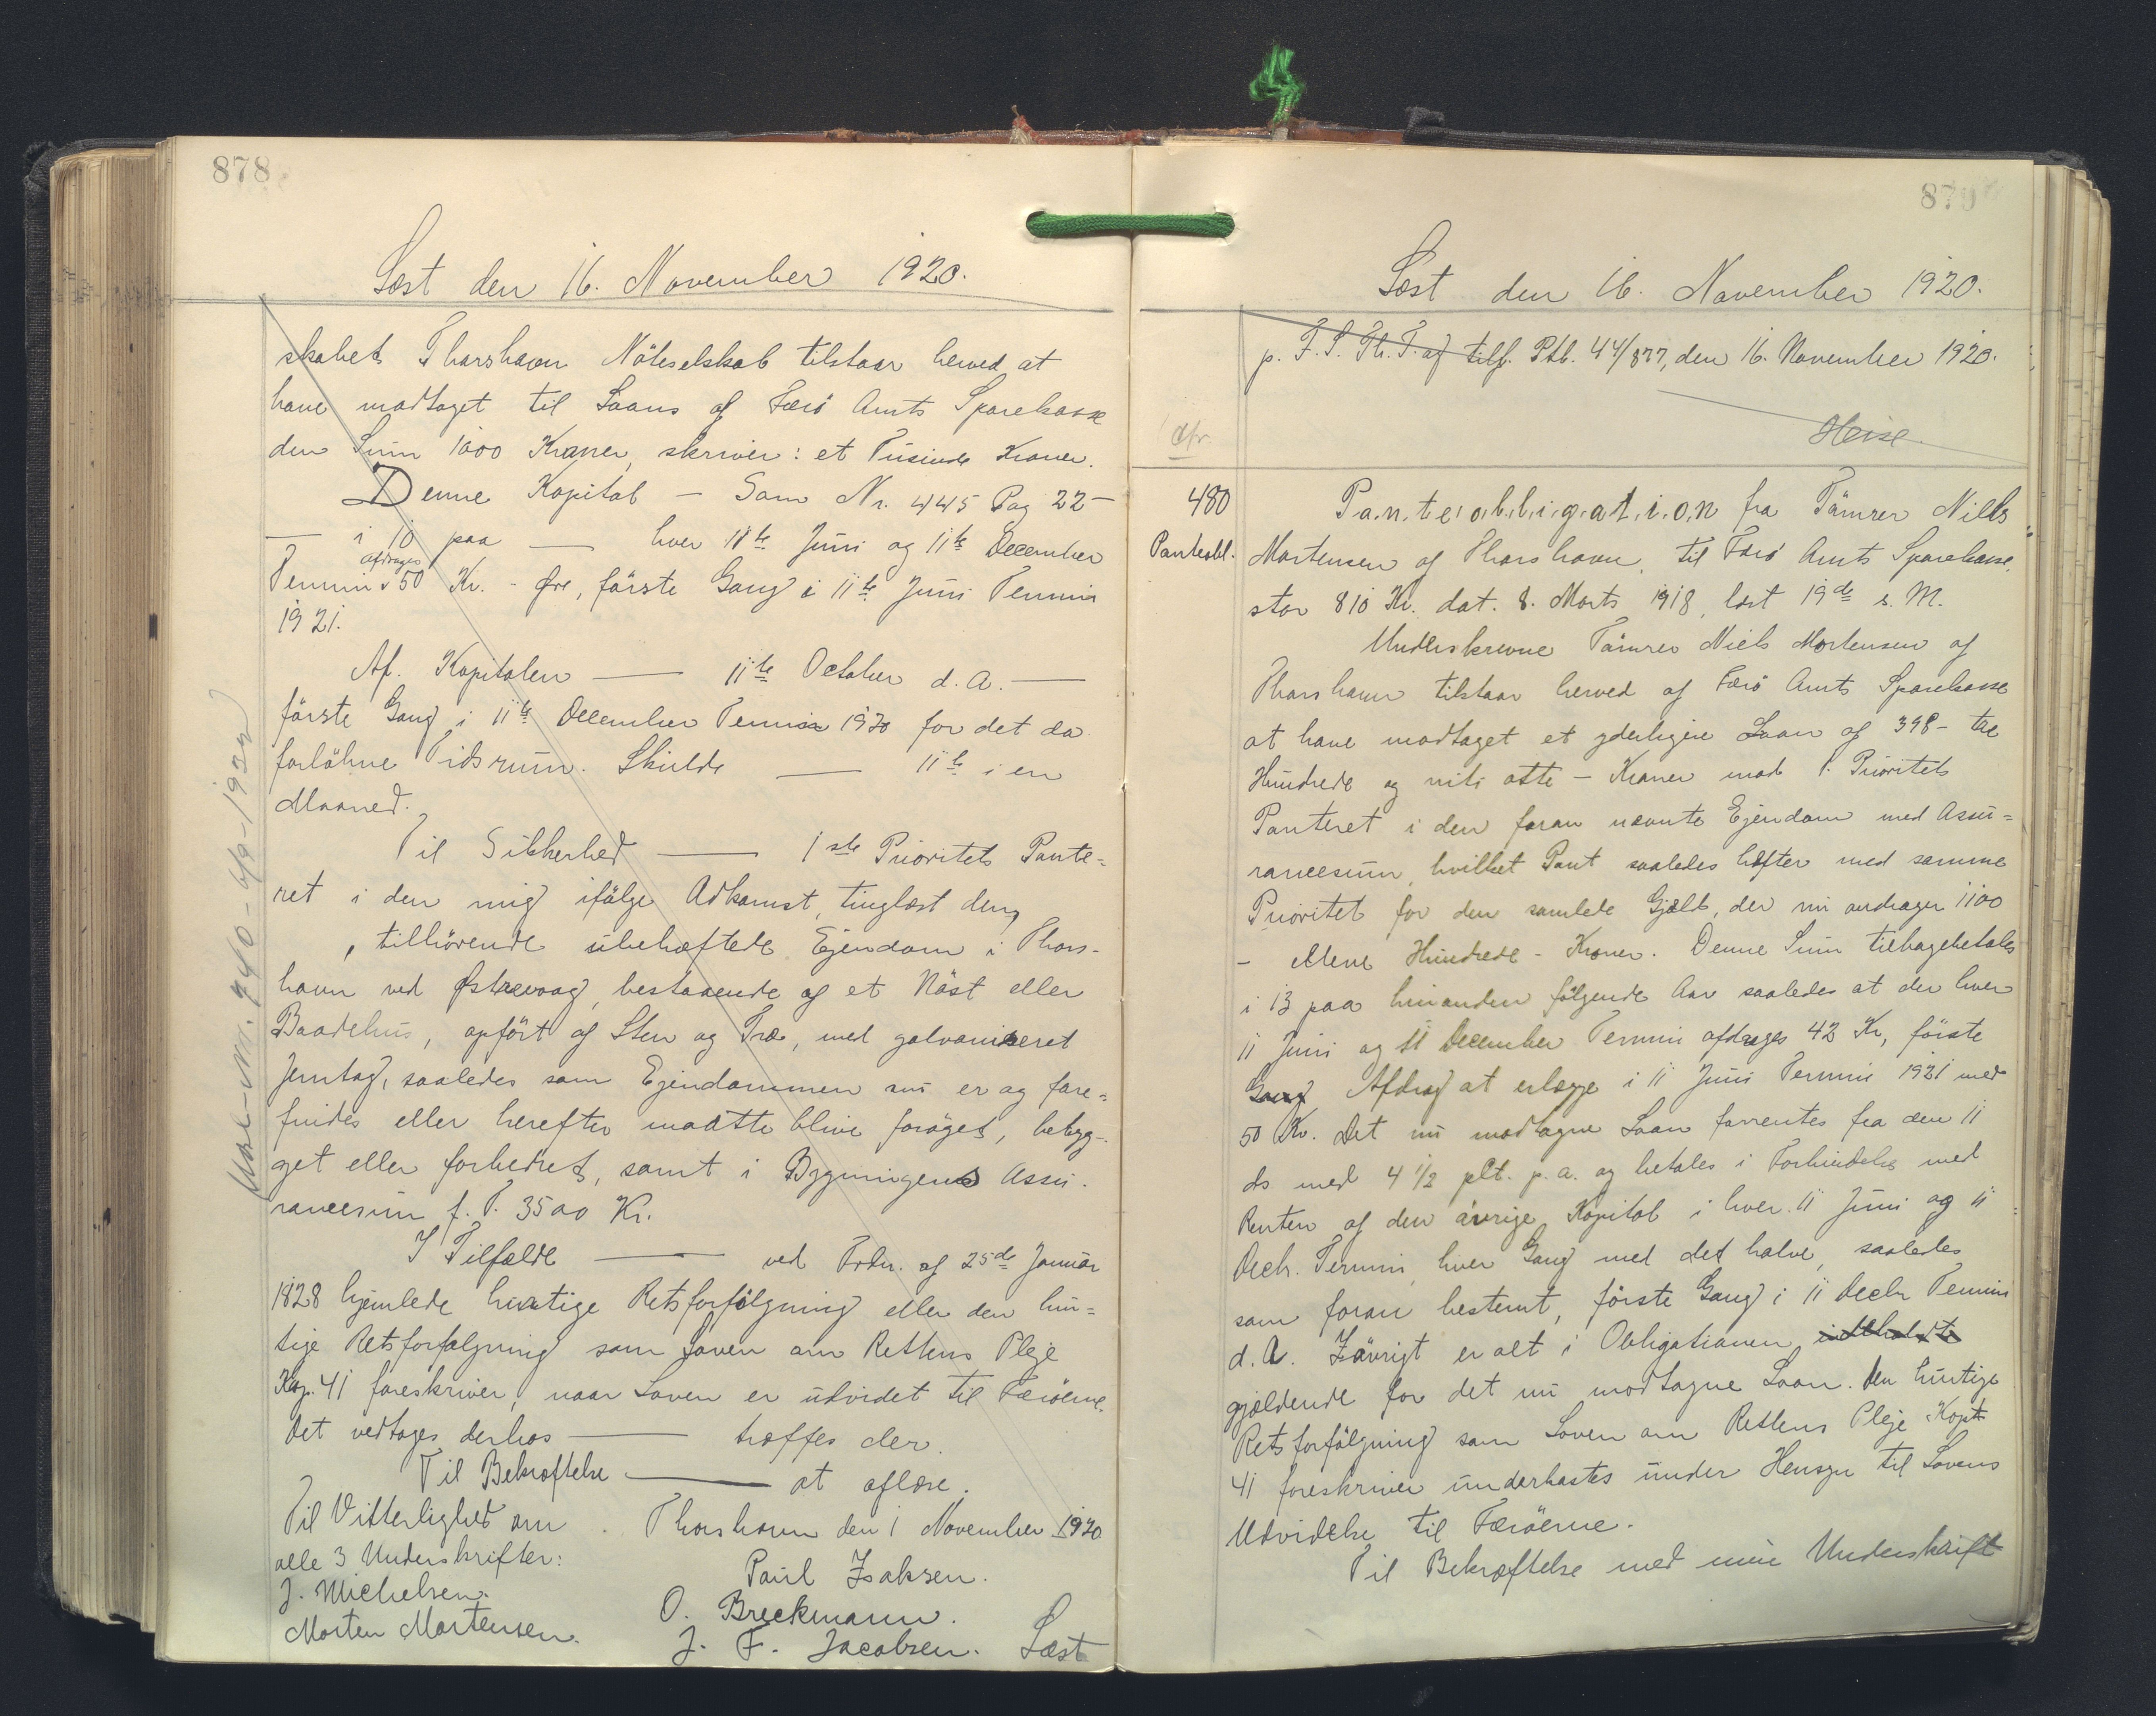 878
Læst den 16. November 1920.
skabet Thorshavn Nöteselskab tilstaar herved at
have modtaget til Laans af Færö Amts Sparekasse
den Sum 1000 Kroner, skriver: et Tusinde Kroner.
Denne Kapital — Som Nr. 445 Pag 22 —
— i 10 paa — hver 11te Juni og 11te December
afdrages
Termin 50 Kr. - Øre, förste Gang i 11te Juni Termin
1921.
Af Kapitalen — 11te October d.A. —
förste Gang i 11te December Termin 1920 for det da
forlöbne Tidsrum. Skulde — 11te i en
Maaned.
Til Sikkerhed — 1ste Prioritets Pante=
ret i den mig ifölge Adkomst, tinglæst den,
, tilhörende ubehæftede Ejendom i Thors-
havn ved Østrevaag, bestaaende af et Nöst eller
Baadehus, opfört af Sten og Træ, med galvaniseret
Jerntag, saaledes som Ejendommen nu er og fore=
findes eller herefter maatte blive foröget, bebyg-
get eller forbedret, samt i Bygningens Assu-
rancesum f. T. 3500 Kr.
I Tilfælde — ved Frdn. af 25de Januar
1828 hjemlede hurtige Retsforfölgning eller den hur=
tige Retsforfølgning som Loven om Rettens Pleje
Kap. 41 foreskriver, naar Loven er udvidet til Færöerne.
Det vedtages derhos — træffes der.
Til Bekræftelse — at aflæse.
Til Vitterlighed om
alle 3 Underskrifter:
J. Michelsen.
Morten Mortensen.
Thorshavn den 1 November 1920
Paul Isaksen.
O. Breckmann.
J. F. Jacobsen. Læst
879
Læst den 16. November 1920.
p. F. S. Th. T. og tilf. Ptb. 44/877, den 16. November 1920.
Heise.
Afr.
480
Panteobl.
Panteobligation fra Tömrer Niels
Mortensen af Thorshavn, til Færö Amts Sparekasse,
stor 810 Kr. dat. 8. Marts 1918, læst 19de s. M.
Underskrevne Tömrer Niels Mortensen af
Thorshavn tilstaar herved af Færö Amts Sparekasse
at have modtaget et yderligere Laan af 398 - tre
Hundrede og niti otte - Kroner mod 1. Prioritets
Panteret i den foran nævnte Ejendom med Assu=
rancesum, hvilket Pant saaledes hæfter med samme
Prioritet for den samlede Gjæld, der nu andrager 1100
- elleve Hundrede - Kroner. Denne Sum tilbagebetales
i 13 paa hinanden fölgende Aar saaledes at der hver
11 Juni og 11 December Termin afdrages 42 Kr, förste
Gang Afdrag at erlægge i 11 Juni Termin 1921 med
50 Kr. Det nu modtagne Laan forrentes fra den 11
ds med 4 1/2 pCt. p. a. og betales i Forbindelse med
Renten af den övrige Kapital i hver 11 Juni og 11
Decbr. Termin, hver Gang med det halve, saaledes
som foran bestemt, förste Gang i 11 Decbr Termin
d.A. Iövrigt er alt i Obligationen indeholdte
gjældende for det nu modtagne Laan. Den hurtige
Retsforfölgning som Loven om Rettens Pleje Kapt
41 foreskriver underkastes under Hensyn til Lovens
Udvidelse til Færöerne.
Til Bekræftelse med min Underskrift